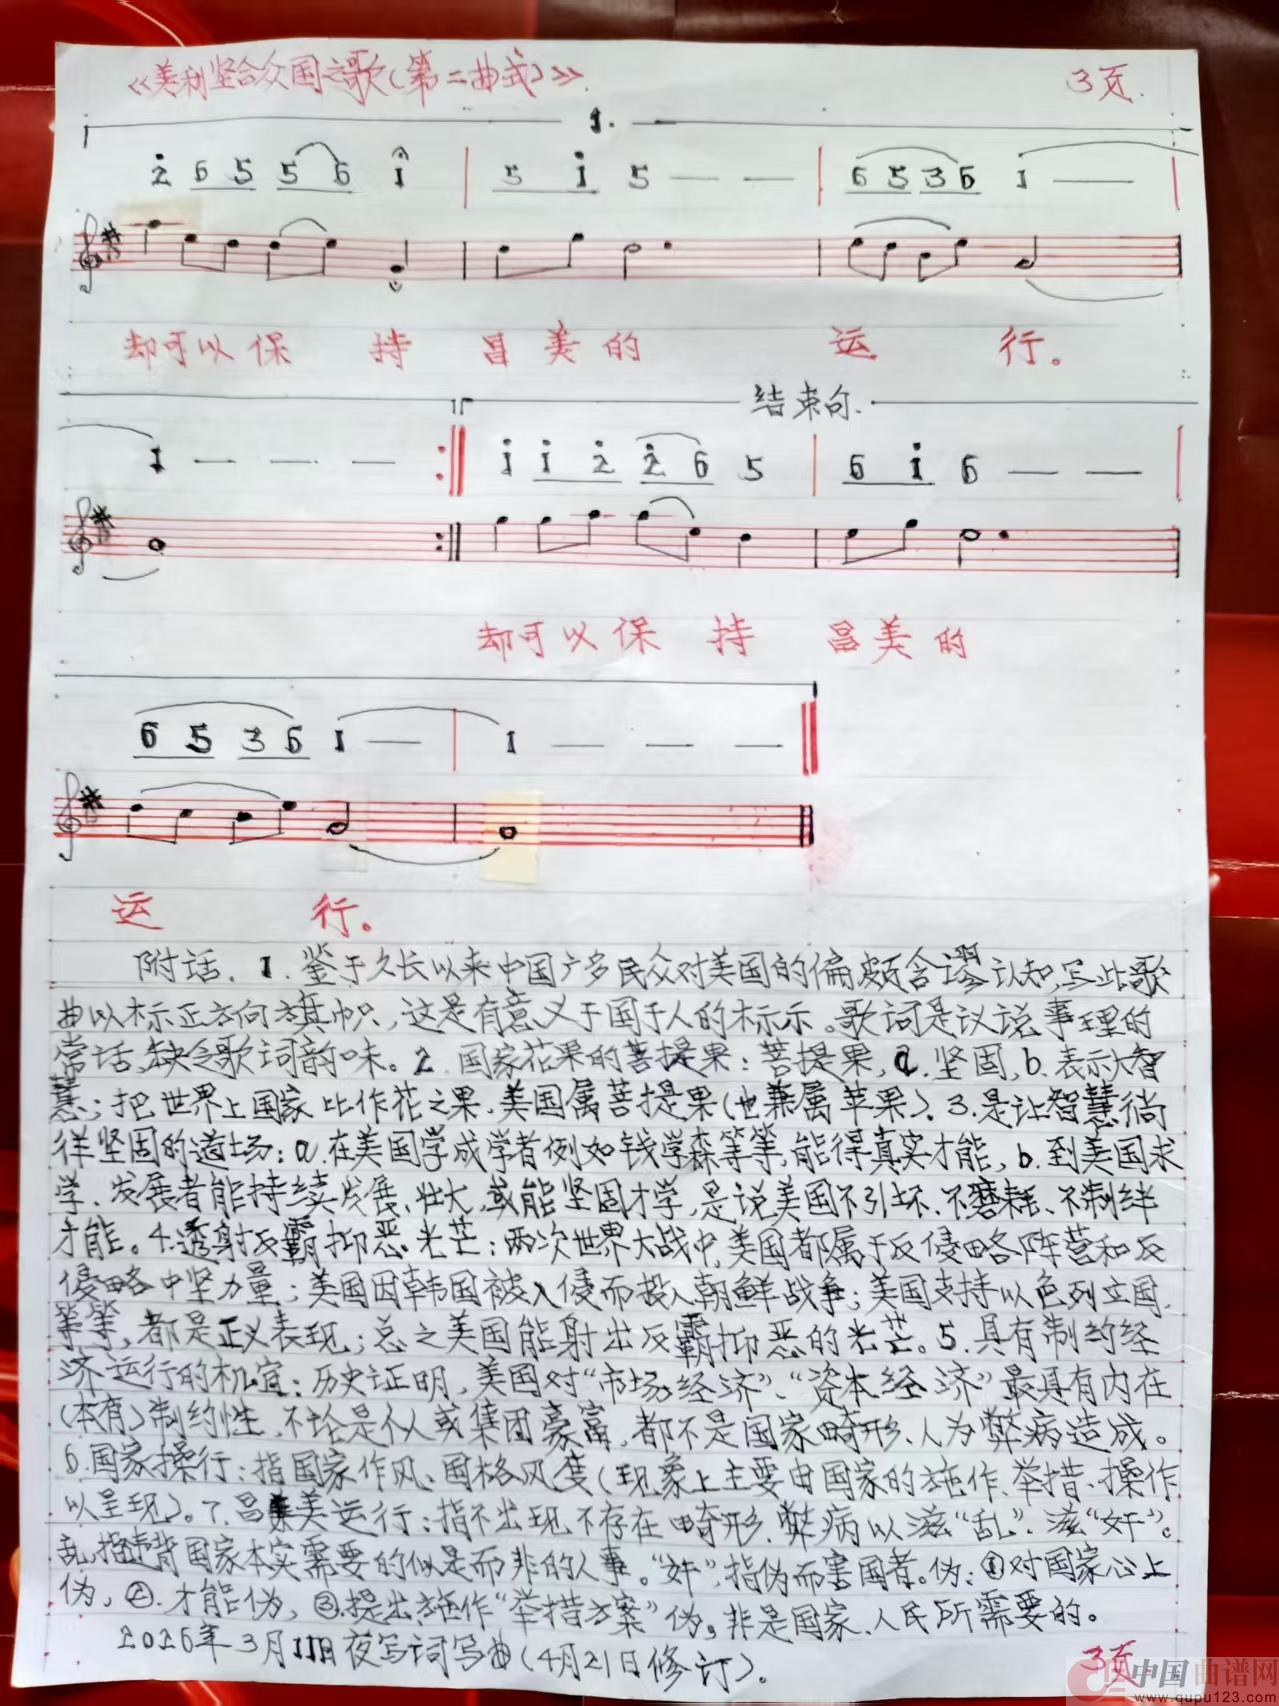 《美利坚合众国之歌(第二曲式)》 3页.
1.
2 6 5 5 6 1 | 5 1 5 — — | 6 5 3 6 1 — |
却可以保 持 昌美的 运 行。
结束句.
1 — — — :‖ 1 1 2 2 6 5 | 6 1 6 — — |
却可以保 持 昌美的
6 5 3 6 1 — | 1 — — — ‖
运 行。
附话.1.鉴于久长以来中国广多民众对美国的偏颇含谬认知,写此歌
曲以标示正方向旗帜,这是有意义于国于人的标示。歌词是议说事理的
常话,缺令歌词韵味。2.国家花果的菩提果:菩提果,a.坚固,b.表示大智
慧;把世界上国家比作花之果,美国属菩提果(也兼属苹果)。3.是让智慧徜
徉坚固的道场:a.在美国学成学者例如钱学森等等,能得真实才能,b.到美国求
学、发展者能持续发展、壮大,或能坚固才学,是说美国不引坏、不磨耗、不制绊
才能。4.透射反霸抑恶光芒:两次世界大战中,美国都属于反侵略阵营和反
侵略中坚力量;美国因韩国被入侵而投入朝鲜战争;美国支持以色列立国,
等等,都是正义表现;总之美国能射出反霸抑恶的光芒。5.具有制约经
济运行的机宜:历史证明,美国对“市场经济”、“资本经济”最具有内在
(本有)制约性,不论是个人或集团豪富,都不是国家畸形、人为弊病造成。
6.国家操行:指国家作风、国格风度(现象上主要由国家的施作、举措、操作
以呈现)。7.昌美运行:指不出现、不存在畸形、弊病以滋“乱”、滋“奸”。
乱,指违背国家本实需要的似是而非的人事。“奸”,指伪而害国者。伪:①对国家心上
伪,②.才能伪,③.提出施作“举措方案”伪。非是国家、人民所需要的。
2026年3月11日夜写词写曲(4月21日修订)。
3页
中国曲谱网
www.qupu123.com